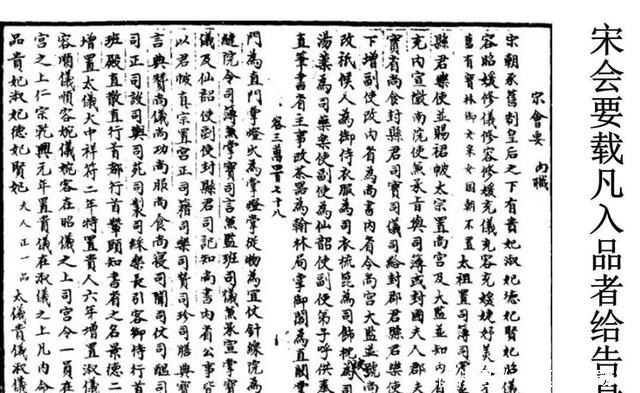 宋会要载凡入品者给告
宋會要 内職
宋朝承舊制皇后之下有貴妃淑妃德妃賢妃昭儀
容昭媛修儀修容修媛充儀充容充媛婕妤美
舊有寶林御女采女國朝不置 太祖置司簿司賓
縣君樂使並賜裙帔太宗置尚宮及大監並知内
充内宣徽南院使兼承旨與司簿或封國夫人郡夫
寶省尚食封縣君司寶司儀司給封郡君縣君樂使
下增副使改内省為尚書内省令尚宮大監並號尚
改祗候人為御侍衣服為司衣梳篦為司飾枕被為司
湯藥為司藥樂使副使為仙韶使副使弟子呼供奉
直筆書省主事改茶器為翰林局掌御閣為直閣
卷三萬四百七十八
門為直門掌燈火為掌燈掌從物為宜仗針線院為
縫院令司簿兼掌寶司言兼監班司儀兼承宣掌寶
儀及仙韶使副使封縣君司記知尚書内省公事皆
以君帔真宗置宮正司籍司樂司贊司珍司膳典寶
言典贊尚儀尚功尚服尚食尚寢司闈司仗司醞司
司正司設司輿司苑司製司綵樂長引客御侍行首
班殿直散直行首都行首輦頭知書省之名景德二
增置太儀大中祥符二年特置貴人六年增置淑儀
容順儀順容婉儀婉容在昭儀之上司宮令一員在
宮之上仁宗乾興元年置貴儀在淑儀之上凡内命
品貴妃淑妃德妃賢妃 夫人正一品 太儀貴儀淑儀